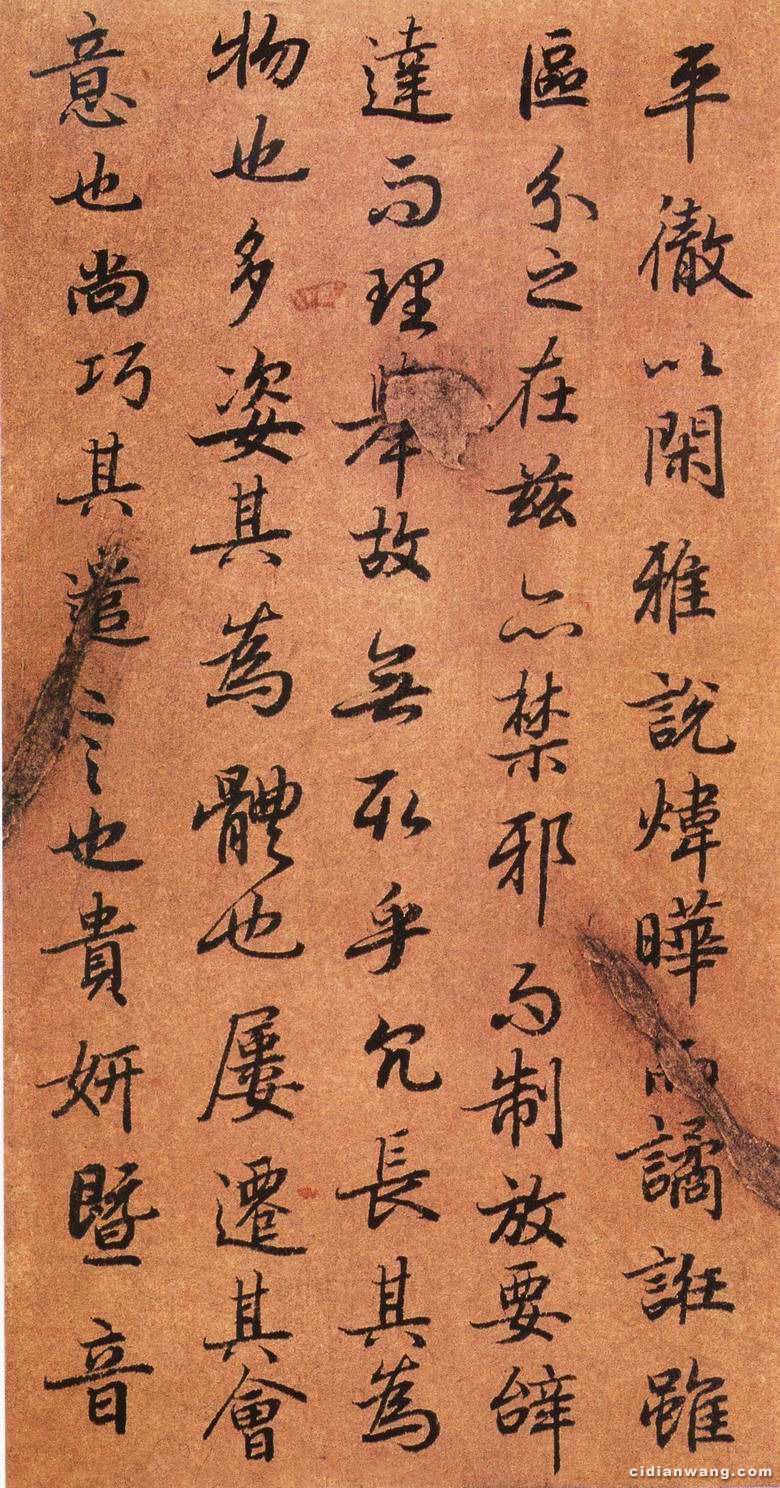 平徹以閑雅說煒曄而譎誑雖
區分之在茲亦禁邪而制放要辭
達而理舉故無取乎冗長其為
物也多姿其為體也屢遷其會
意也尚巧其遣言也貴妍暨音
cidianwang.com